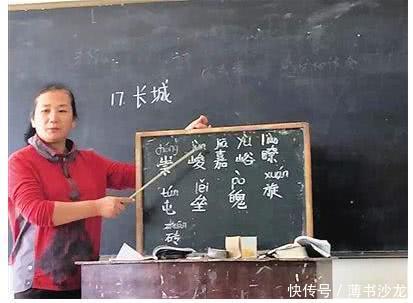 17.长城
chóng jùn liáo
崇 峻 嘉 峪 瞭
xuán
旋
tún lěi pò
屯 垒 魄
zhuān
砖
快传号 / 薄书沙龙